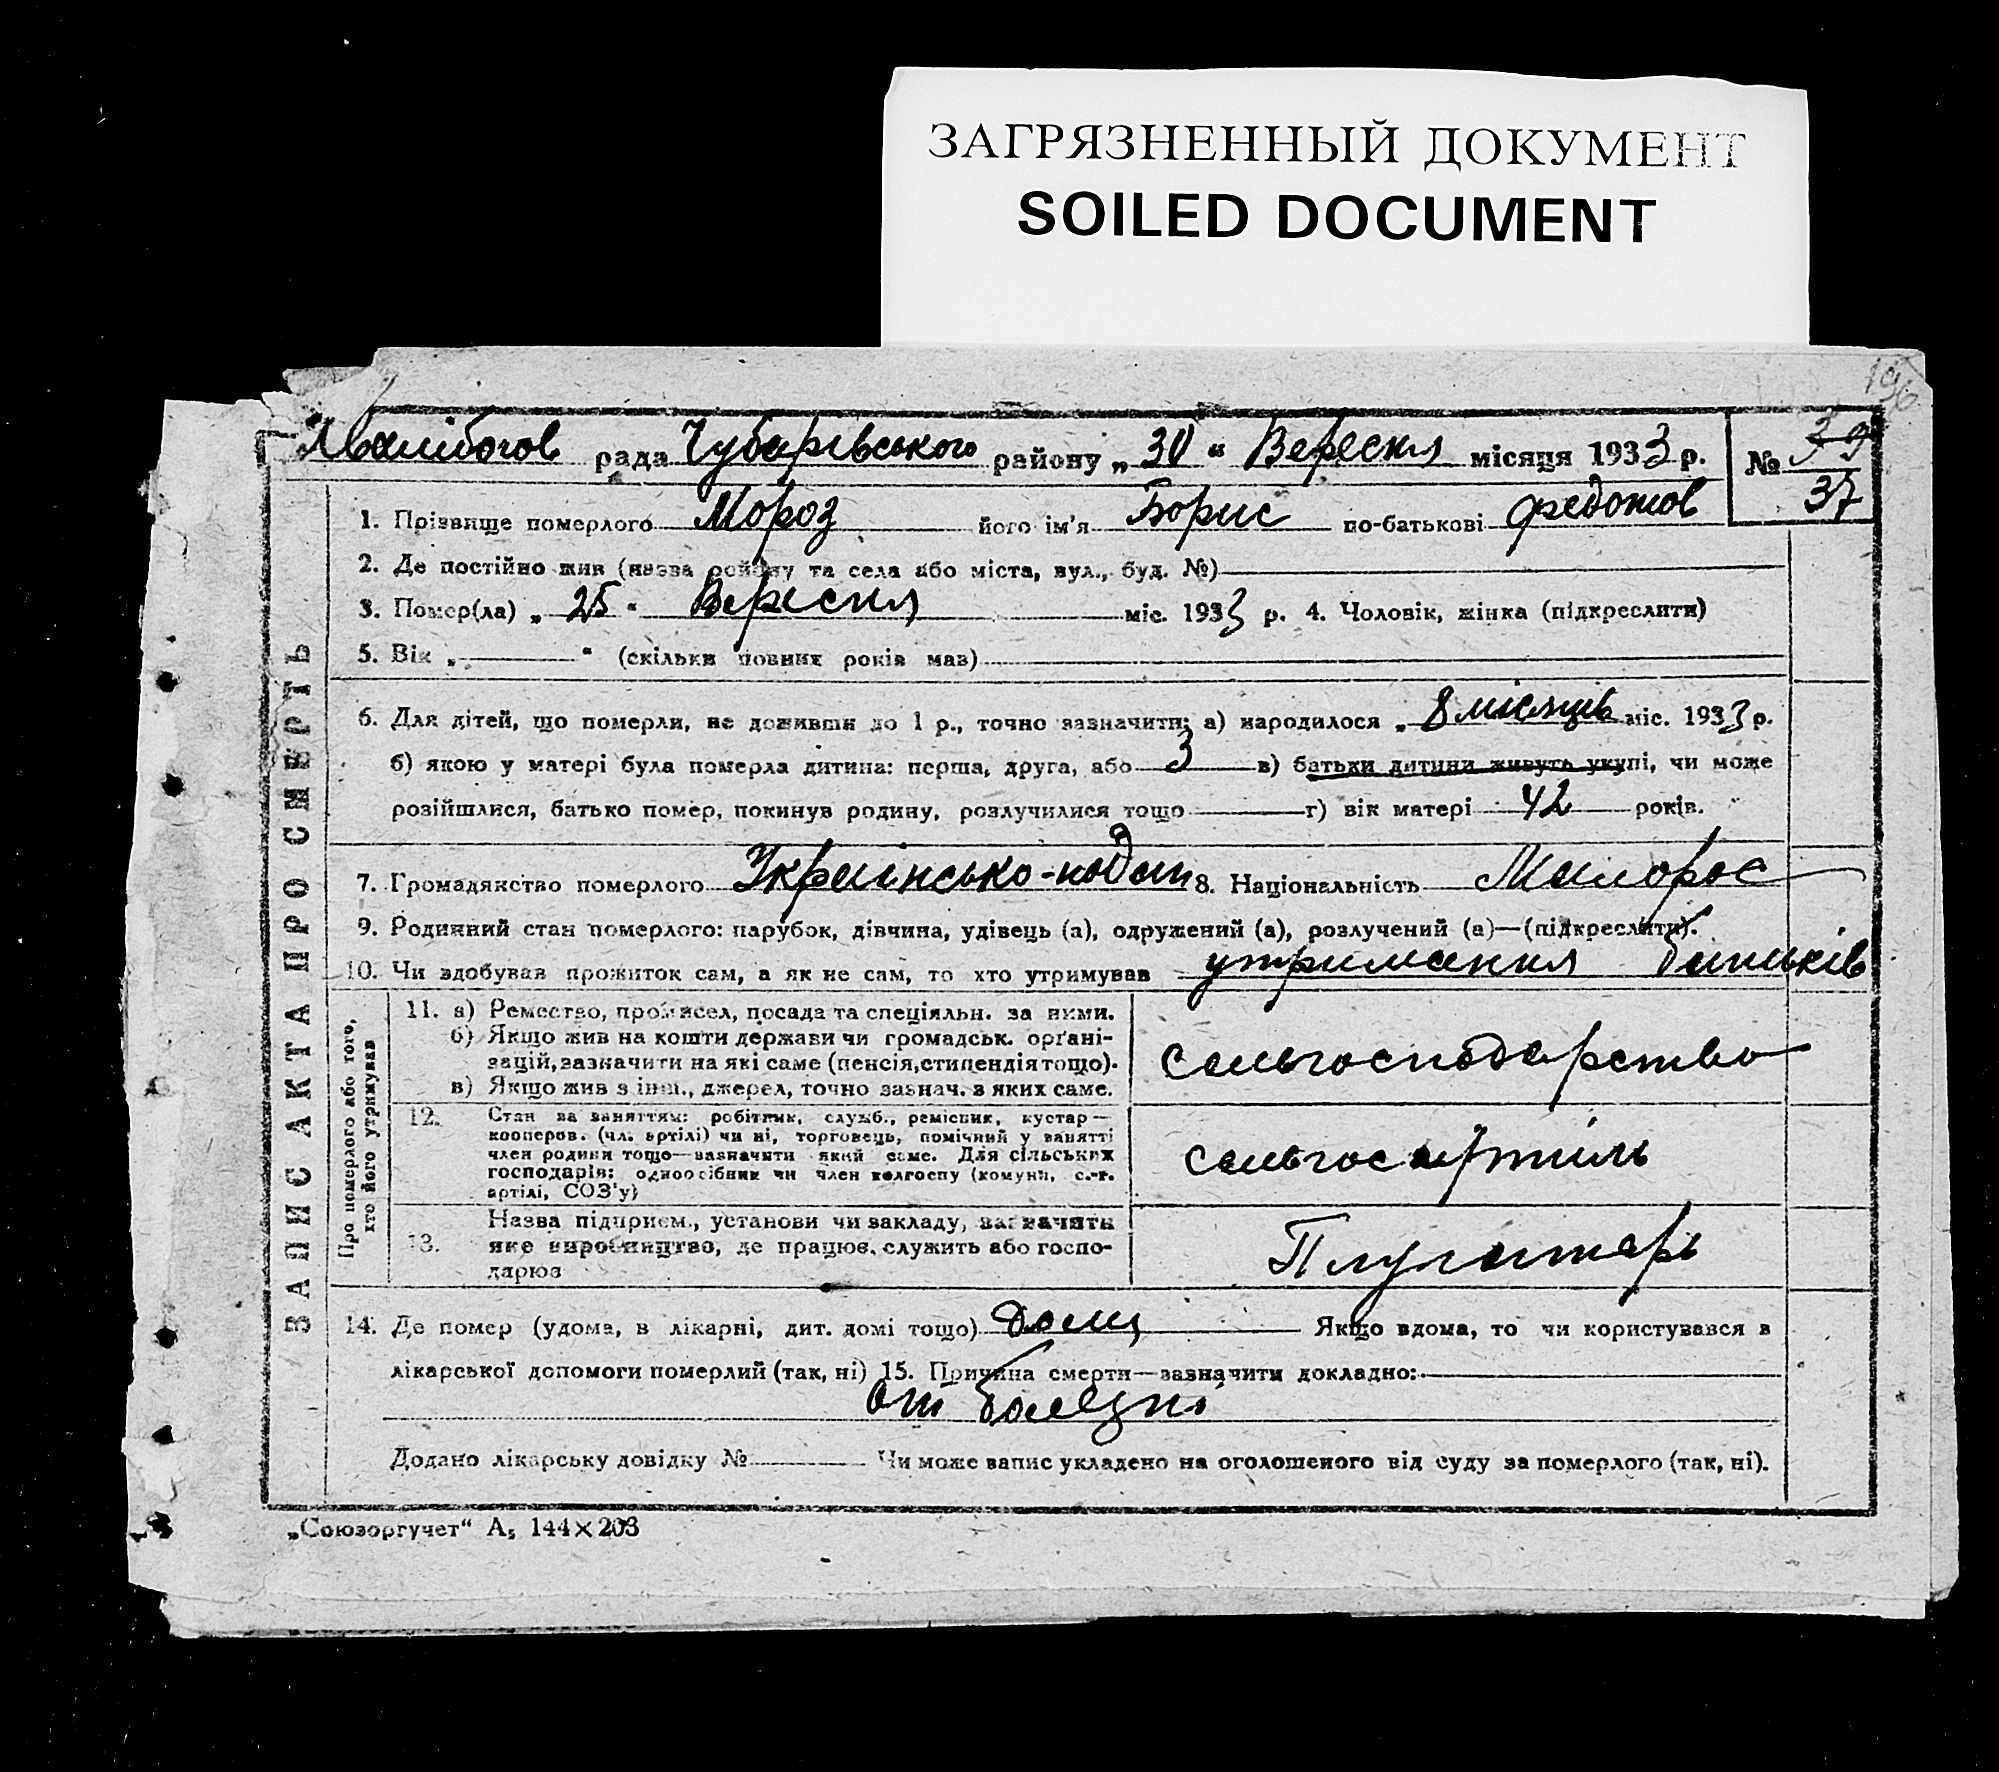 ЗАГРЯЗНЕННЫЙ ДОКУМЕНТ
SOILED DOCUMENT
196
рада Чубарівського району „30“ Вересня місяця 1933 р. № 39
37
ЗАПИС АКТА ПРО СМЕРТЬ
1. Прізвище померлого Мороз його ім'я Борис по-батькові Федотов
2. Де постійно жив (назва району та села або міста, вул., буд. №)
3. Помер(ла) „25“ Вересня міс. 1933 р. 4. Чоловік, жінка (підкреслити)
5. Вік „ “ (скільки повних років мав)
6. Для дітей, що померли, не доживши до 1 р., точно зазначити: а) народилося „8 місяців міс. 1933 р.
б) якою у матері була померла дитина: перша, друга, або 3 в) батьки дитини живуть укупі, чи може
розійшлися, батько помер, покинув родину, розлучилися тощо г) вік матері 42 років.
7. Громадянство померлого Українсько-подан 8. Національність Малорос
9. Родинний стан померлого: парубок, дівчина, удівець (а), одружений (а), розлучений (а)—(підкреслити).
10. Чи здобував прожиток сам, а як не сам, то хто утримував утримання батьків
Про померлого або того, хто його утримував
11. а) Ремество, промисел, посада та спеціяльн. за ними.
б) Якщо жив на кошти держави чи громадськ. органі-
зацій, зазначити на які саме (пенсія, стипендія тощо).
в) Якщо жив з інш., джерел, точно зазнач. з яких саме.
сельгосподарство
12. Стан за заняттям: робітник, служб., ремісник, кустар—
кооперов. (чл. артілі) чи ні, торговець, помічний у занятті
член родини тощо—зазначити який саме. Для сільських
господарів: одноосібник чи член колгоспу (комуни, с.-г.
артілі, СОЗ'у)
сельгосартіль
13. Назва підприєм., установи чи закладу, зазначити
яке виробництво, де працює, служить або госпо-
дарює
Плугатарь
14. Де помер (удома, в лікарні, дит. домі тощо) дома Якщо вдома, то чи користувався в
лікарської допомоги померлий (так, ні) 15. Причина смерти—зазначити докладно:
от болезні
Додано лікарську довідку № Чи може запис укладено на оголошеного від суду за померлого (так, ні).
„Союзоргучет“ А5 144×203